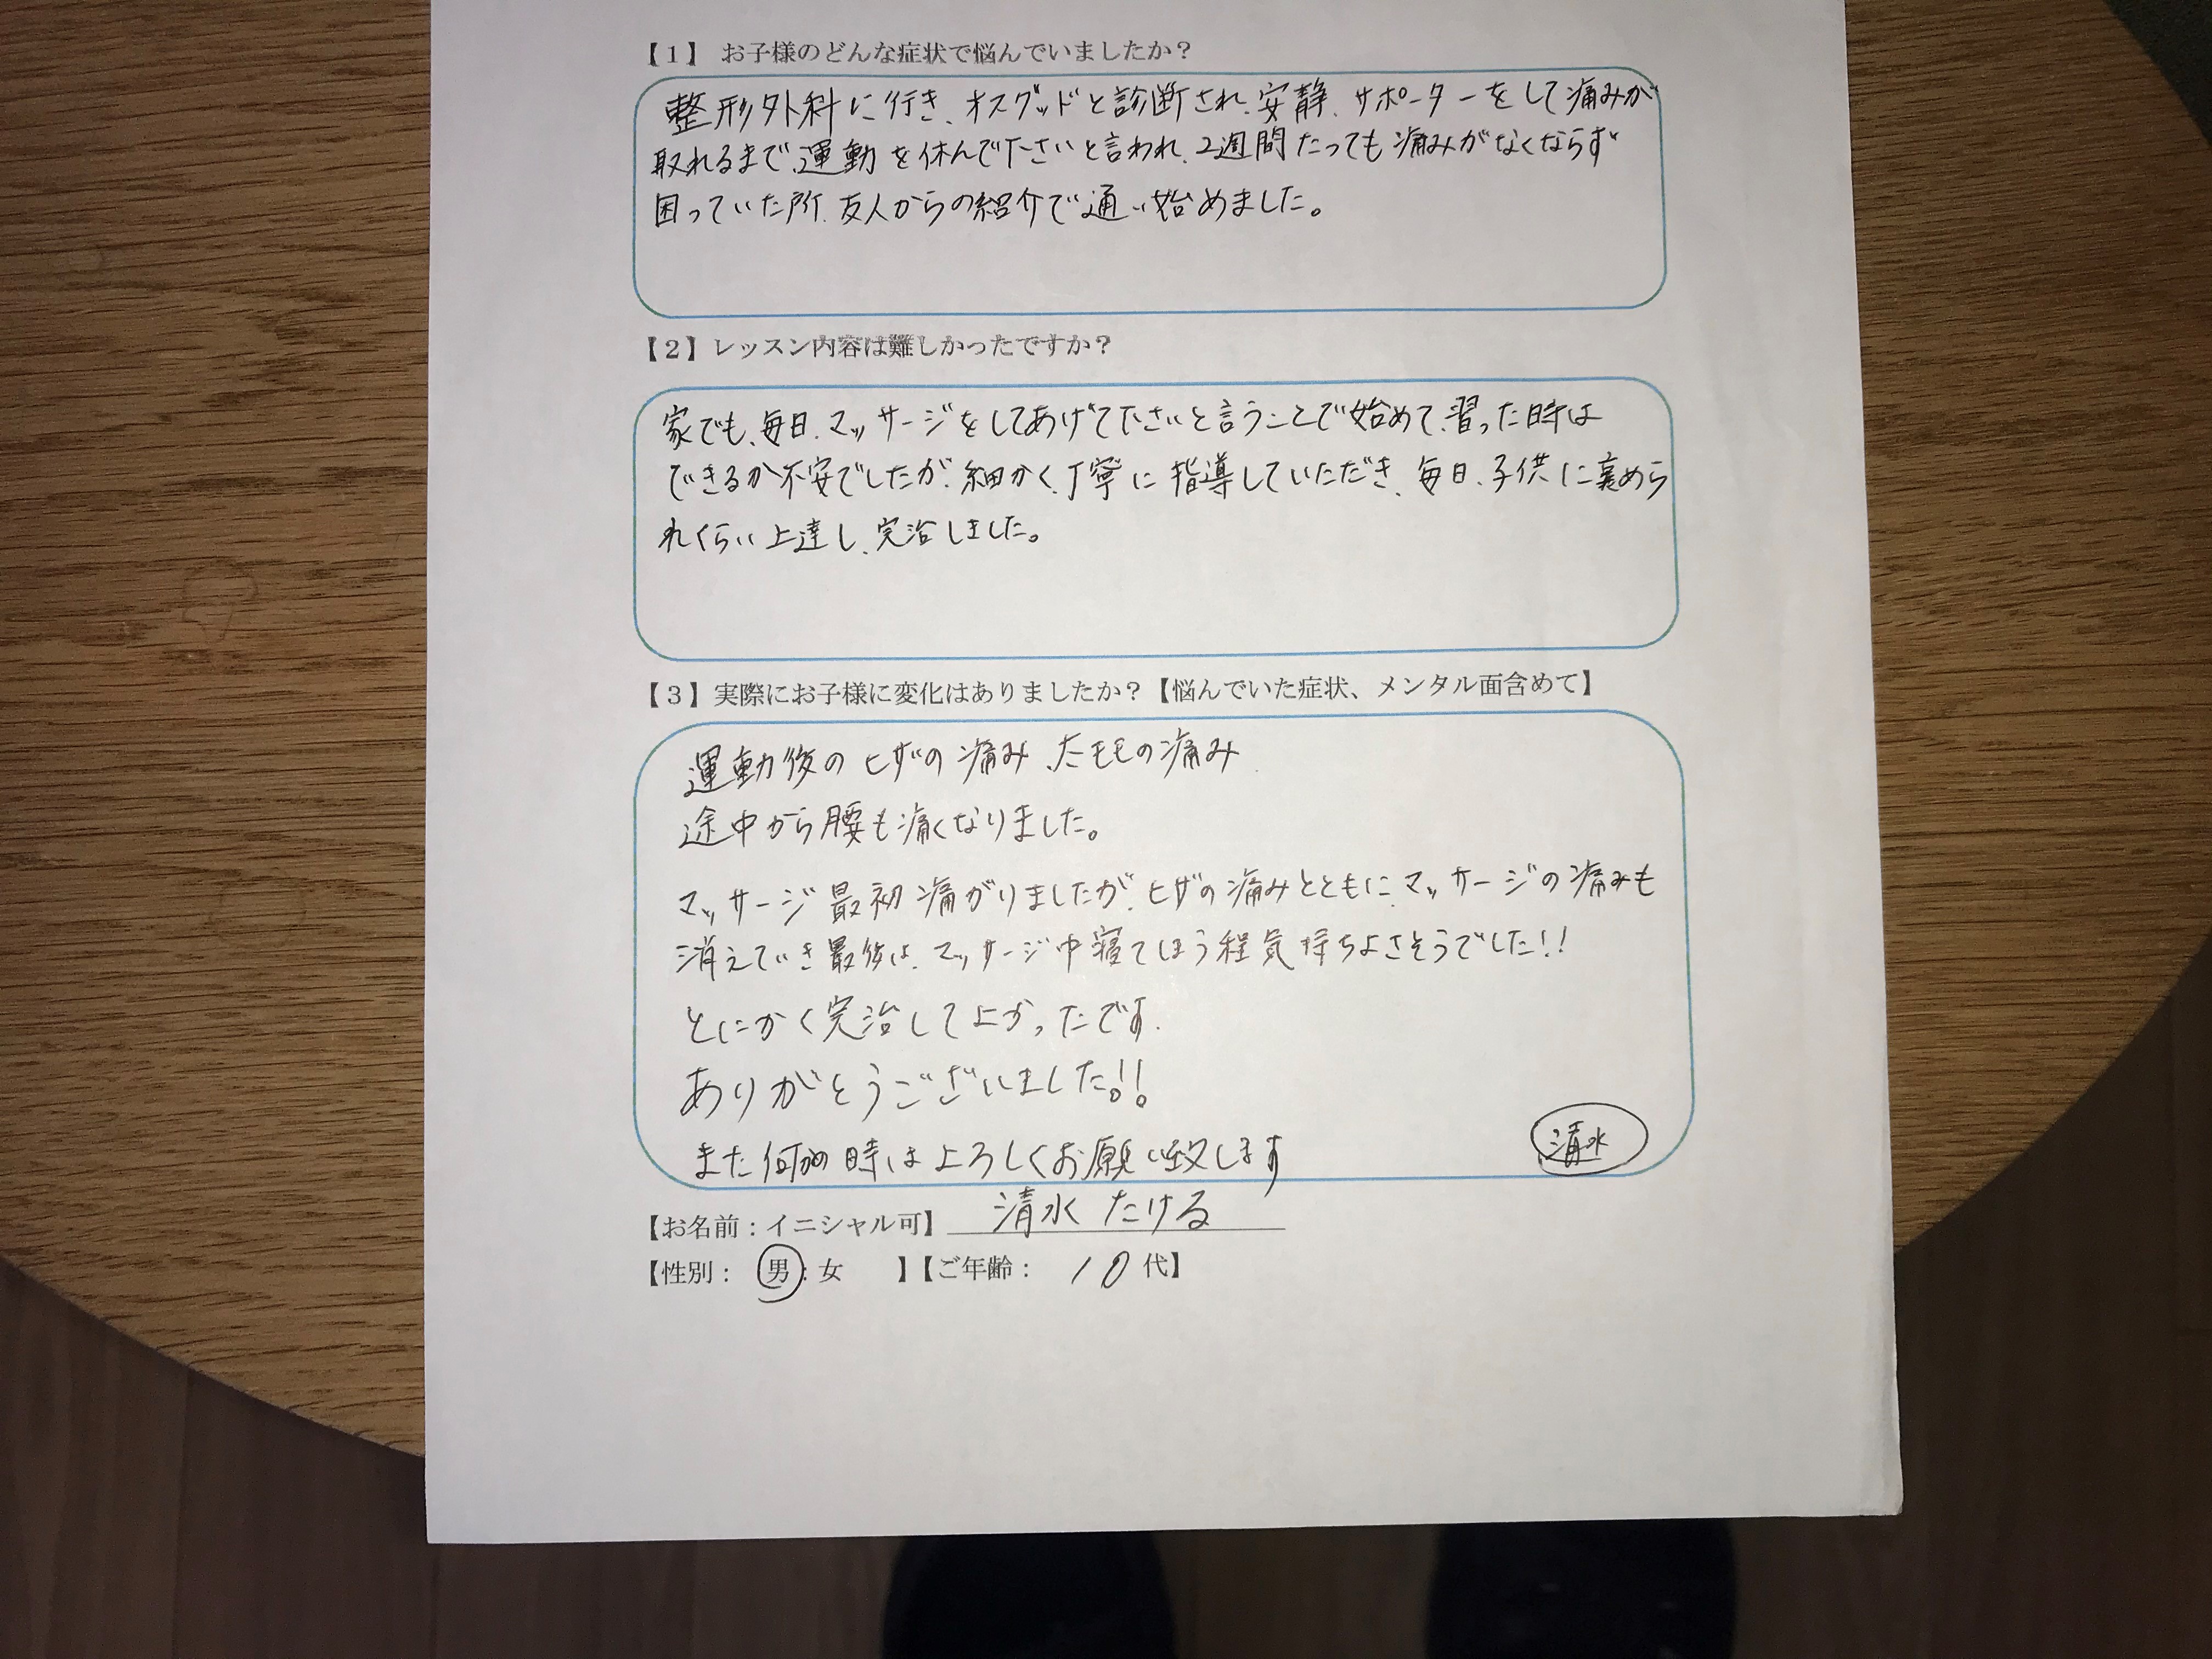 【1】 お子様のどんな症状で悩んでいましたか？
整形外科に行き、オスグッドと診断され、安静、サポーターをして痛みが
取れるまで運動を休んで下さいと言われ、2週間たっても痛みがなくならず
困っていた所、友人からの紹介で通い始めました。
【2】レッスン内容は難しかったですか？
家でも、毎日、マッサージをしてあげて下さいと言うことで始めて、習った時は
できるか不安でしたが、細かく、丁寧に指導していただき、毎日、子供に褒めら
れくらい上達し、完治しました。
【3】実際にお子様に変化はありましたか？【悩んでいた症状、メンタル面含めて】
運動後のヒザの痛み、太モモの痛み
途中から腰も痛くなりました。
マッサージ最初痛がりましたが、ヒザの痛みとともに、マッサージの痛みも
消えていき最後は、マッサージ中寝てしまう程気持ちよさそうでした!!
とにかく完治して上かったです。
ありがとうございました!!
また何かの時はよろしくお願い致します
清水
【お名前：イニシャル可】 清水 たける
【性別： 男：女 】【ご年齢： 10 代】